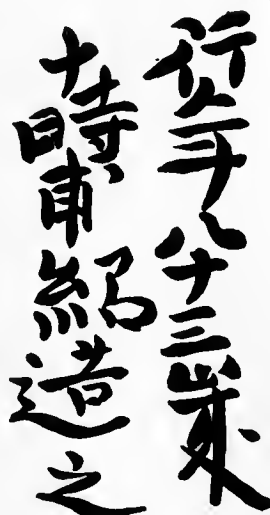 行年八十三歳
十時甫造之